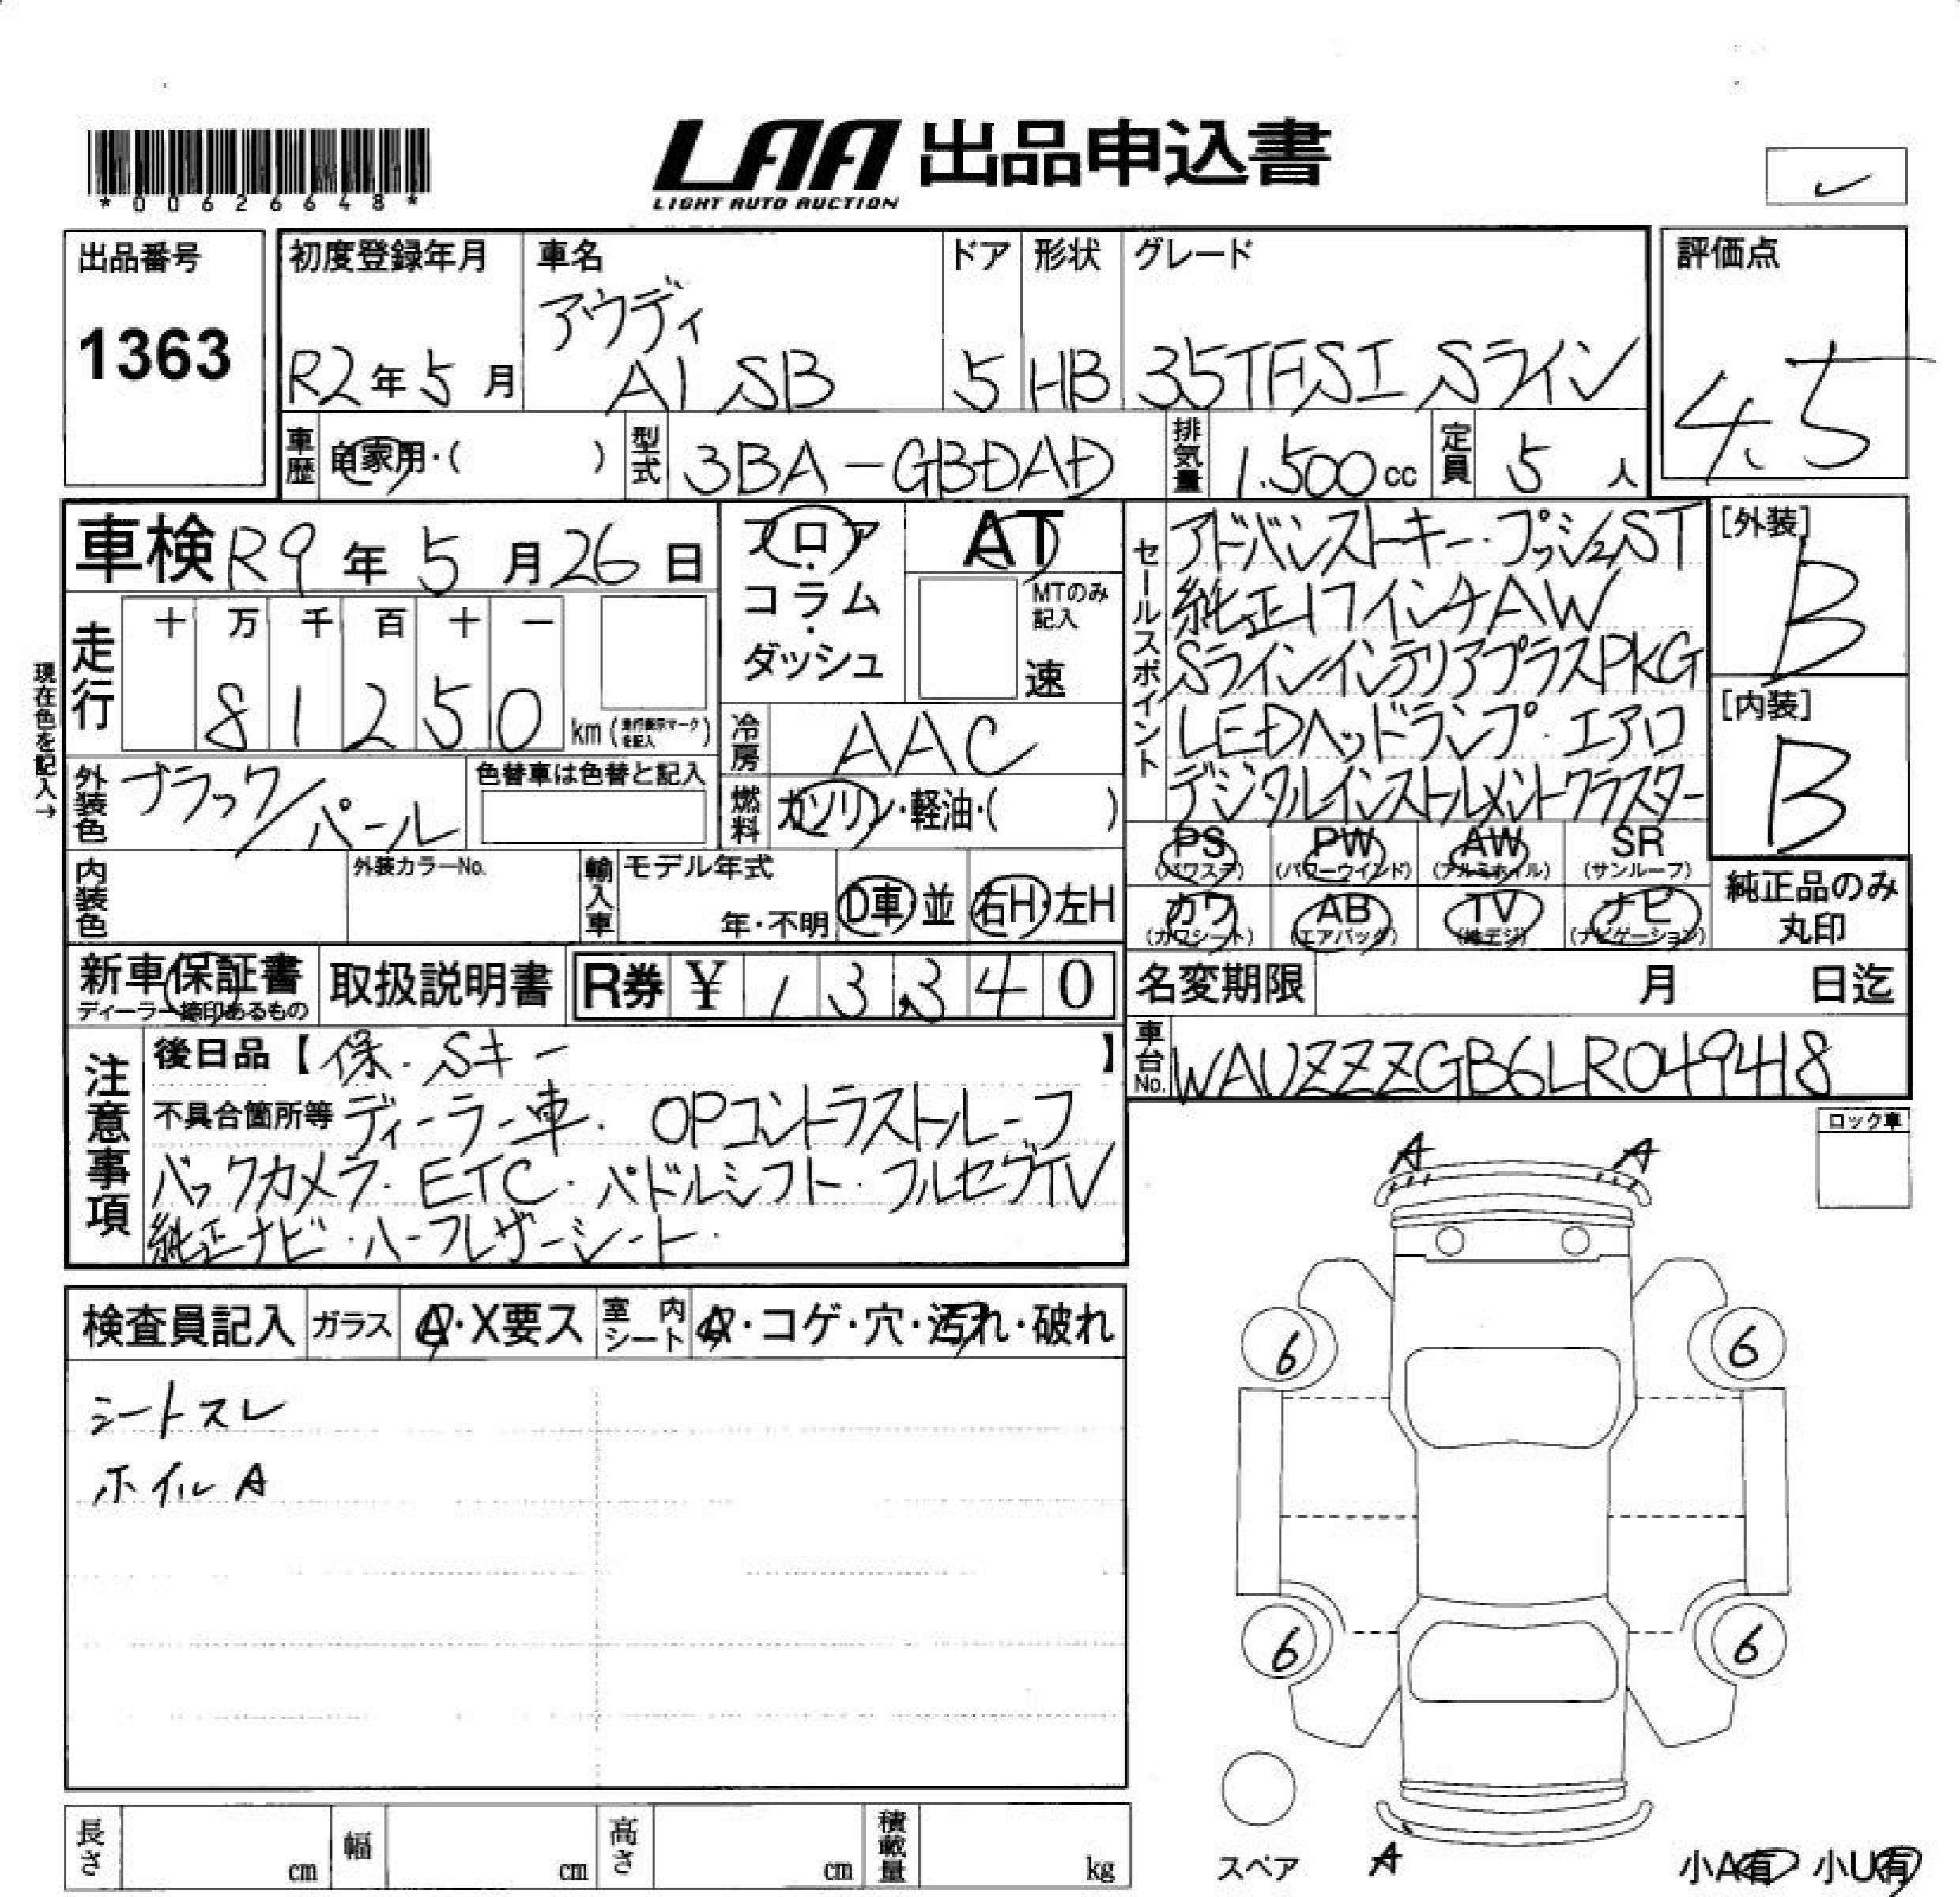 *00626648*
LAA 出品申込書
LIGHT AUTO AUCTION
出品番号
1363
初度登録年月
R2年5月
車名
アウディ
A1 SB
ドア
5
形状
HB
グレード
35TFSI Sライン
評価点
4.5
車歴 自家用・( )
型式 3BA-GBDAD
排気量 1.500cc
定員 5人
車検 R9年5月26日
フロア・コラム・ダッシュ
AT
MTのみ記入
速
走行
十 万 千 百 十 一
81250 km (走行表示マークを記入)
現在色を記入→
冷房 AAC
外装色 ブラック/パール
色替車は色替と記入
燃料 ガソリン・軽油・( )
内装色
外装カラーNo.
輸入車
モデル年式
年・不明
D車・並
右H・左H
セールスポイント
アドバンストキー・プッシュST
純正17インチAW
SラインインテリアプラスPKG
LEDヘッドランプ・エアロ
デジタルインストルメントクラスター
[外装]
B
[内装]
B
PS (パワステ)
PW (パワーウインド)
AW (アルミホイル)
SR (サンルーフ)
カワ (カワシート)
AB (エアバッグ)
TV (地デジ)
ナビ (ナビゲーション)
純正品のみ丸印
新車保証書
ディーラー捺印あるもの
取扱説明書
R券 ¥ 13,340
名変期限 月 日迄
車台No. WAUZZZGB6LR049418
注意事項
後日品【保.Sキー 】
不具合箇所等 ディーラー車. OPコントラストルーフ
バックカメラ・ETC・パドルシフト・フルセグTV
純正ナビ・ハーフレザーシート.
ロック車
検査員記入
ガラス A・X要ス
室内シート A・コゲ・穴・汚れ・破れ
シートスレ
ホイル A
A A
6 6
6 6
スペア
A
小A有 小U有
長さ cm
幅 cm
高さ cm
積載量 kg